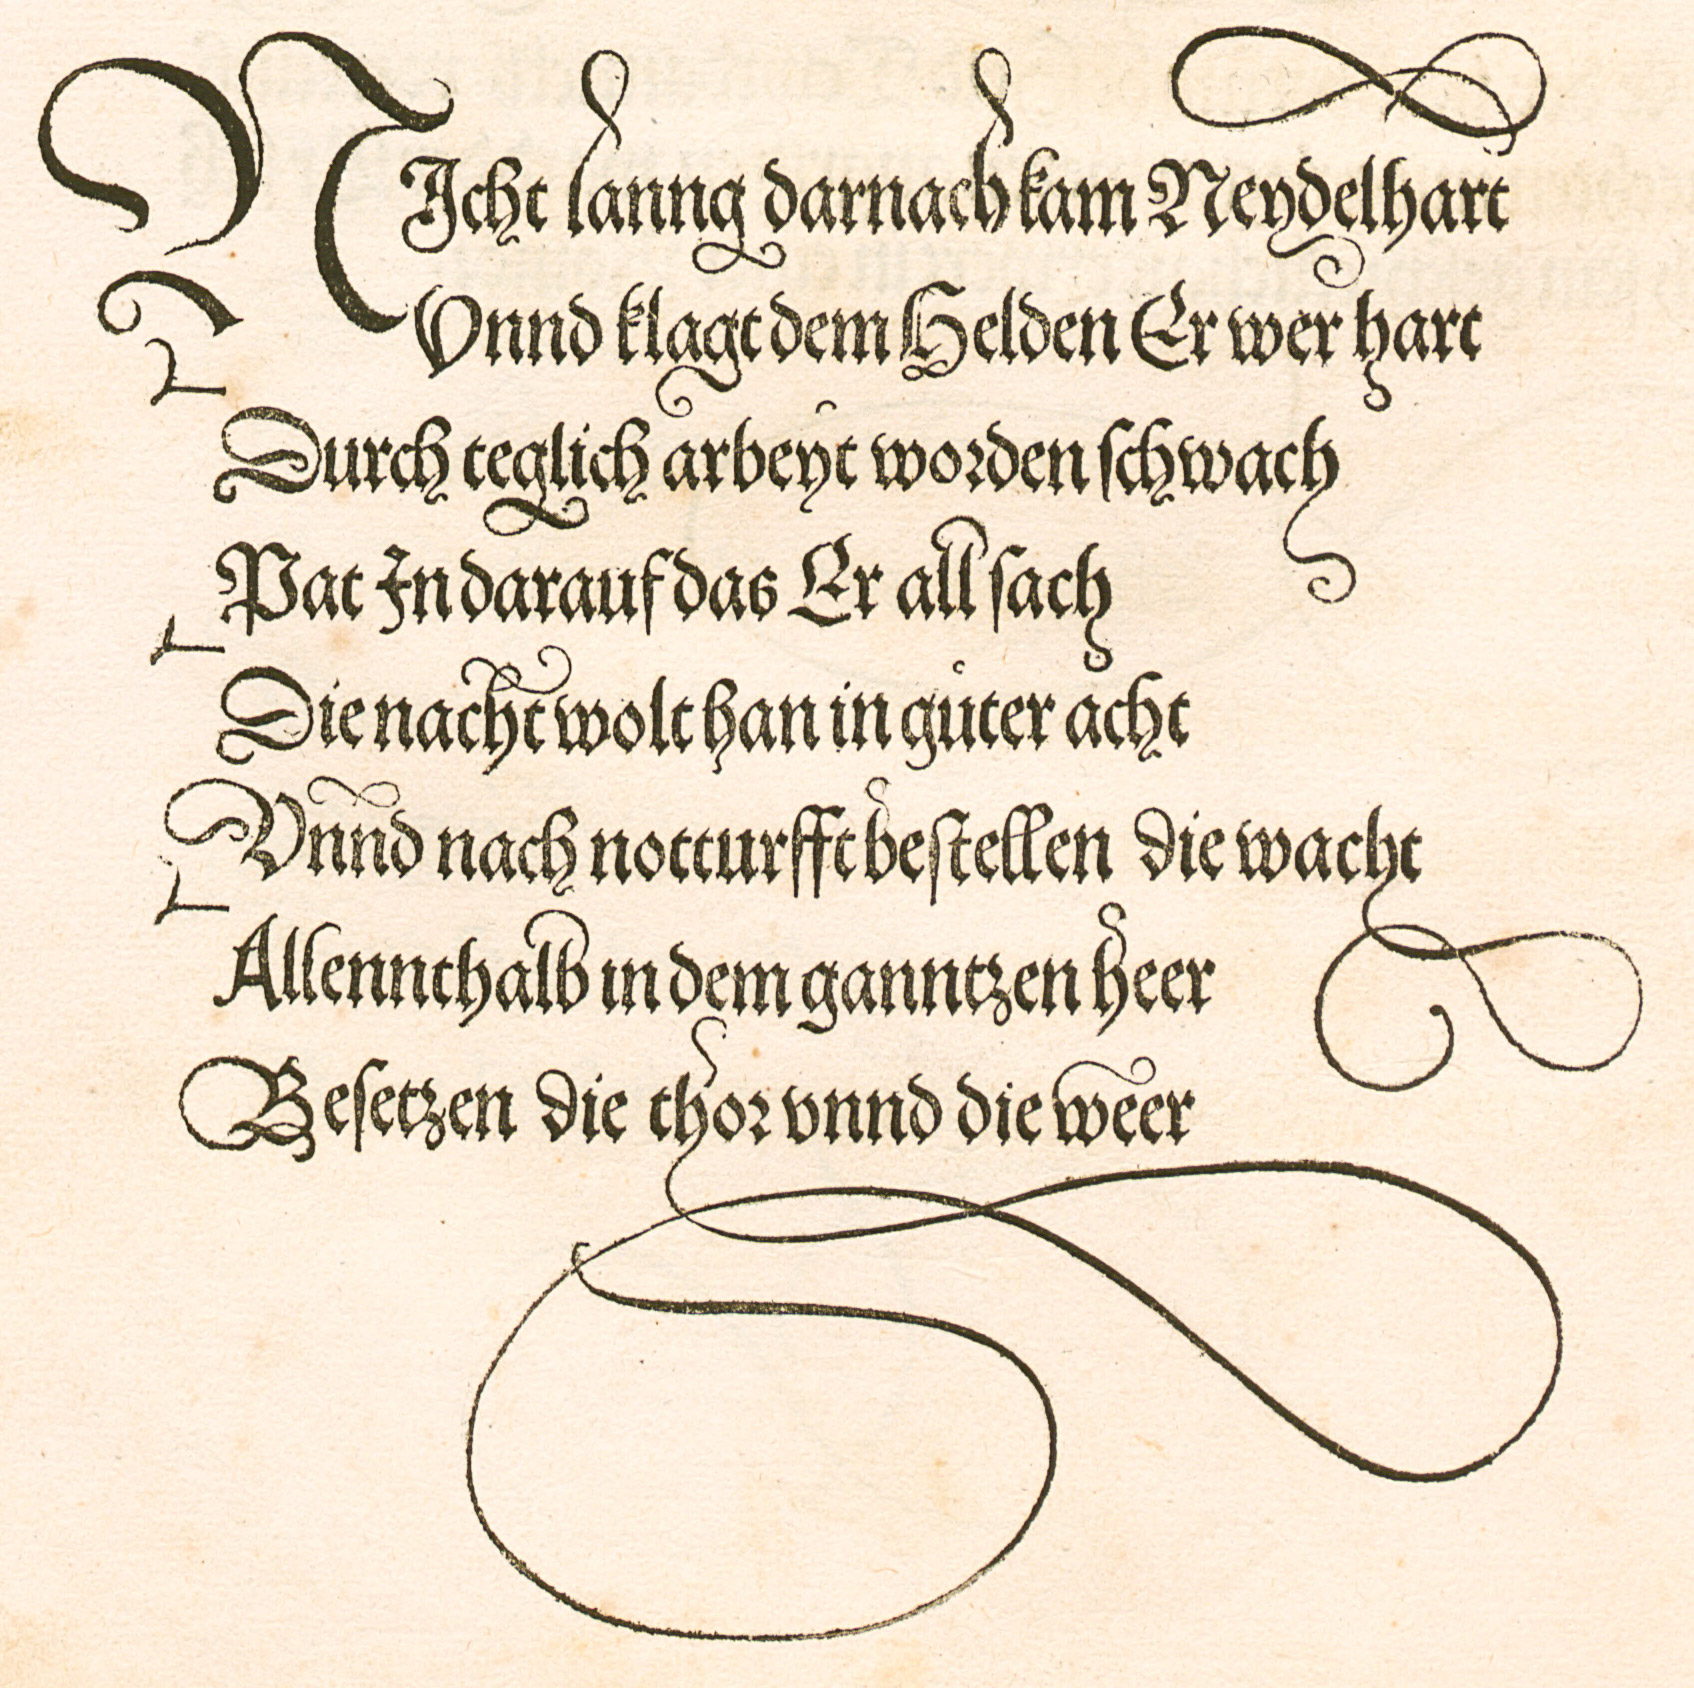 NIcht lanng darnach kam Neydelhart
Vnnd klagt dem Helden Er wer hart
Durch teglich arbeyt worden ſchwach
Pat In darauf das Er all ſach
Die nacht wolt han in gůter acht
Vnnd nach notturfft beſtellen die wacht
Allennthalb in dem ganntzen heer
Beſetzen die thor vnnd die weer